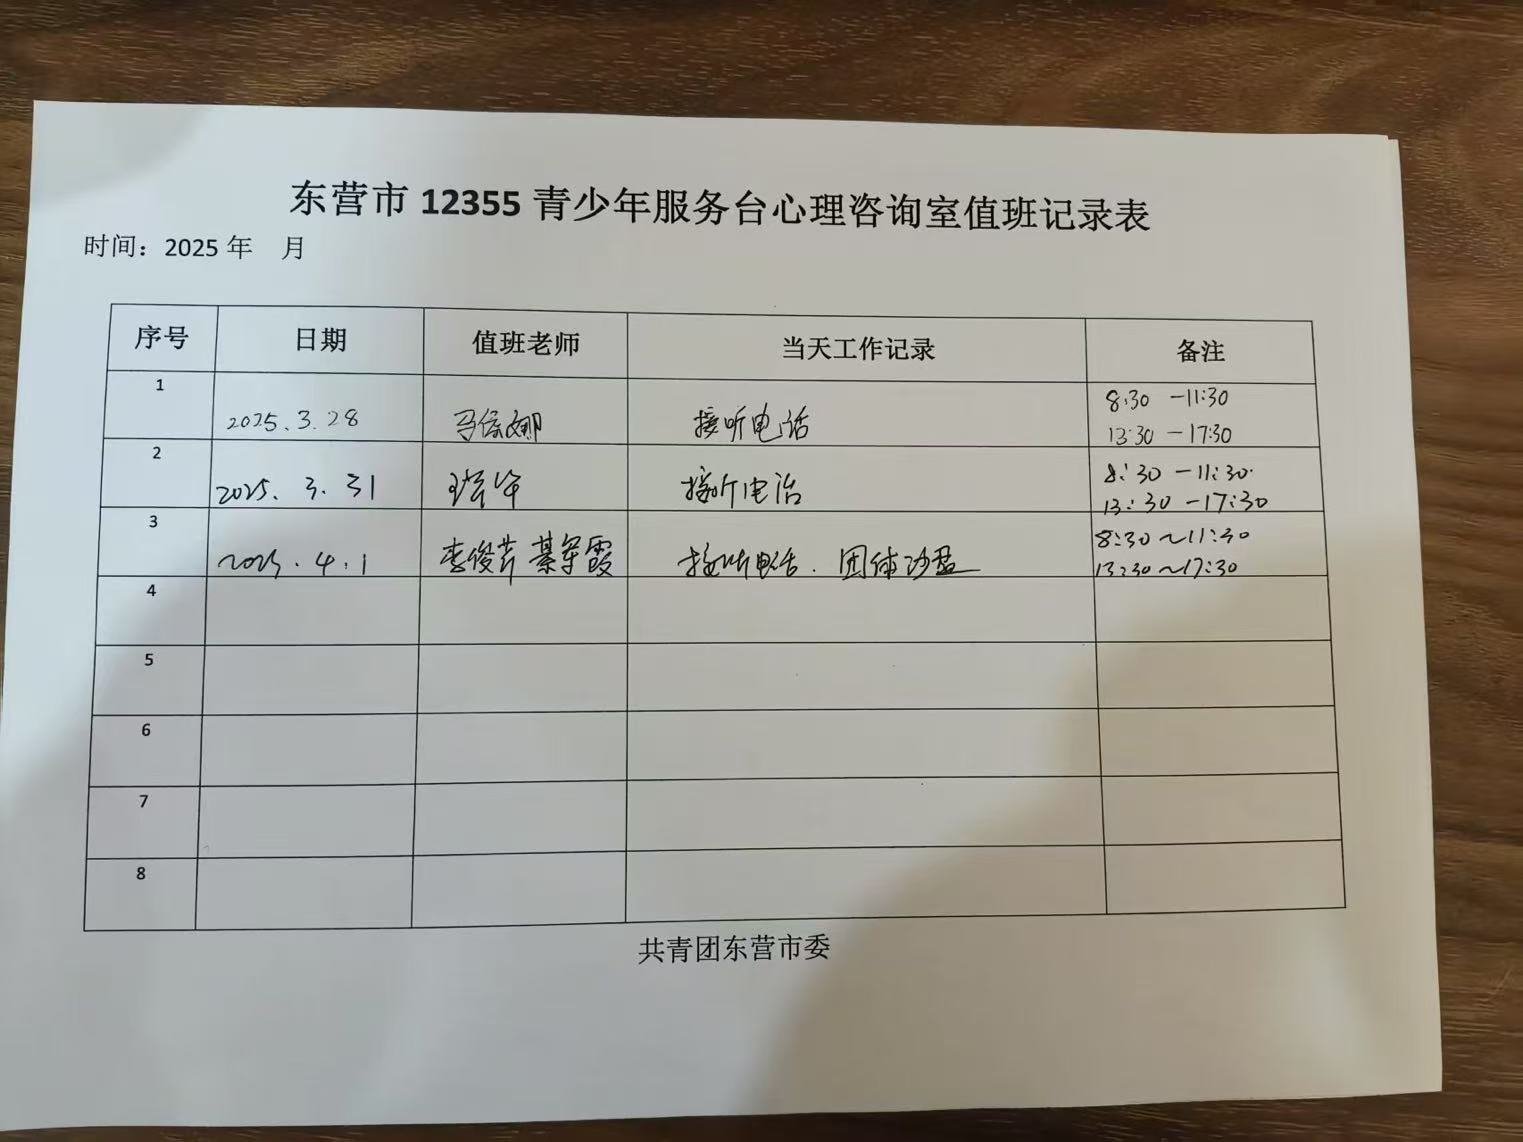 东营市 12355 青少年服务台心理咨询室值班记录表
时间：2025 年 月
序号 日期 值班老师 当天工作记录 备注
1 2025.3.28 接听电话 8:30 -11:30
13:30 -17:30
2 2025.3.31 接听电话 8:30 -11:30
13:30 -17:30
3 2025.4.1 李俊芹 綦军霞 接听电话. 团体沙盘 8:30~11:30
13:30~17:30
4
5
6
7
8
共青团东营市委